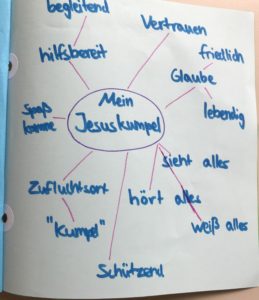 begleitend
Vertrauen
hilfsbereit
friedlich
Glaube
lebendig
Mein
Jesuskumpel
Spaß
sieht alles
Zufluchtsort
hört alles
"Kumpel"
weiß alles
Schützend